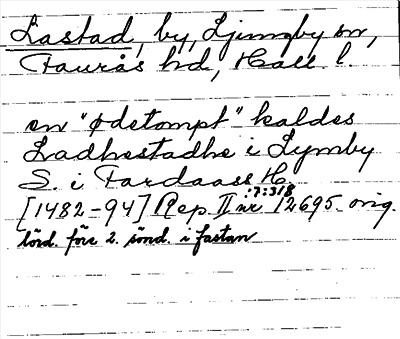 Lastad, by, Ljungby sn,
Faurås hd, Hall. l.
en "Ødetompt" kaldes
Ladhestadhe i Lymby
S. i Fardaass H.
:7:318
[1482-94] Rep. II nr 12695 orig.
lörd. före 2. sönd. i fastan